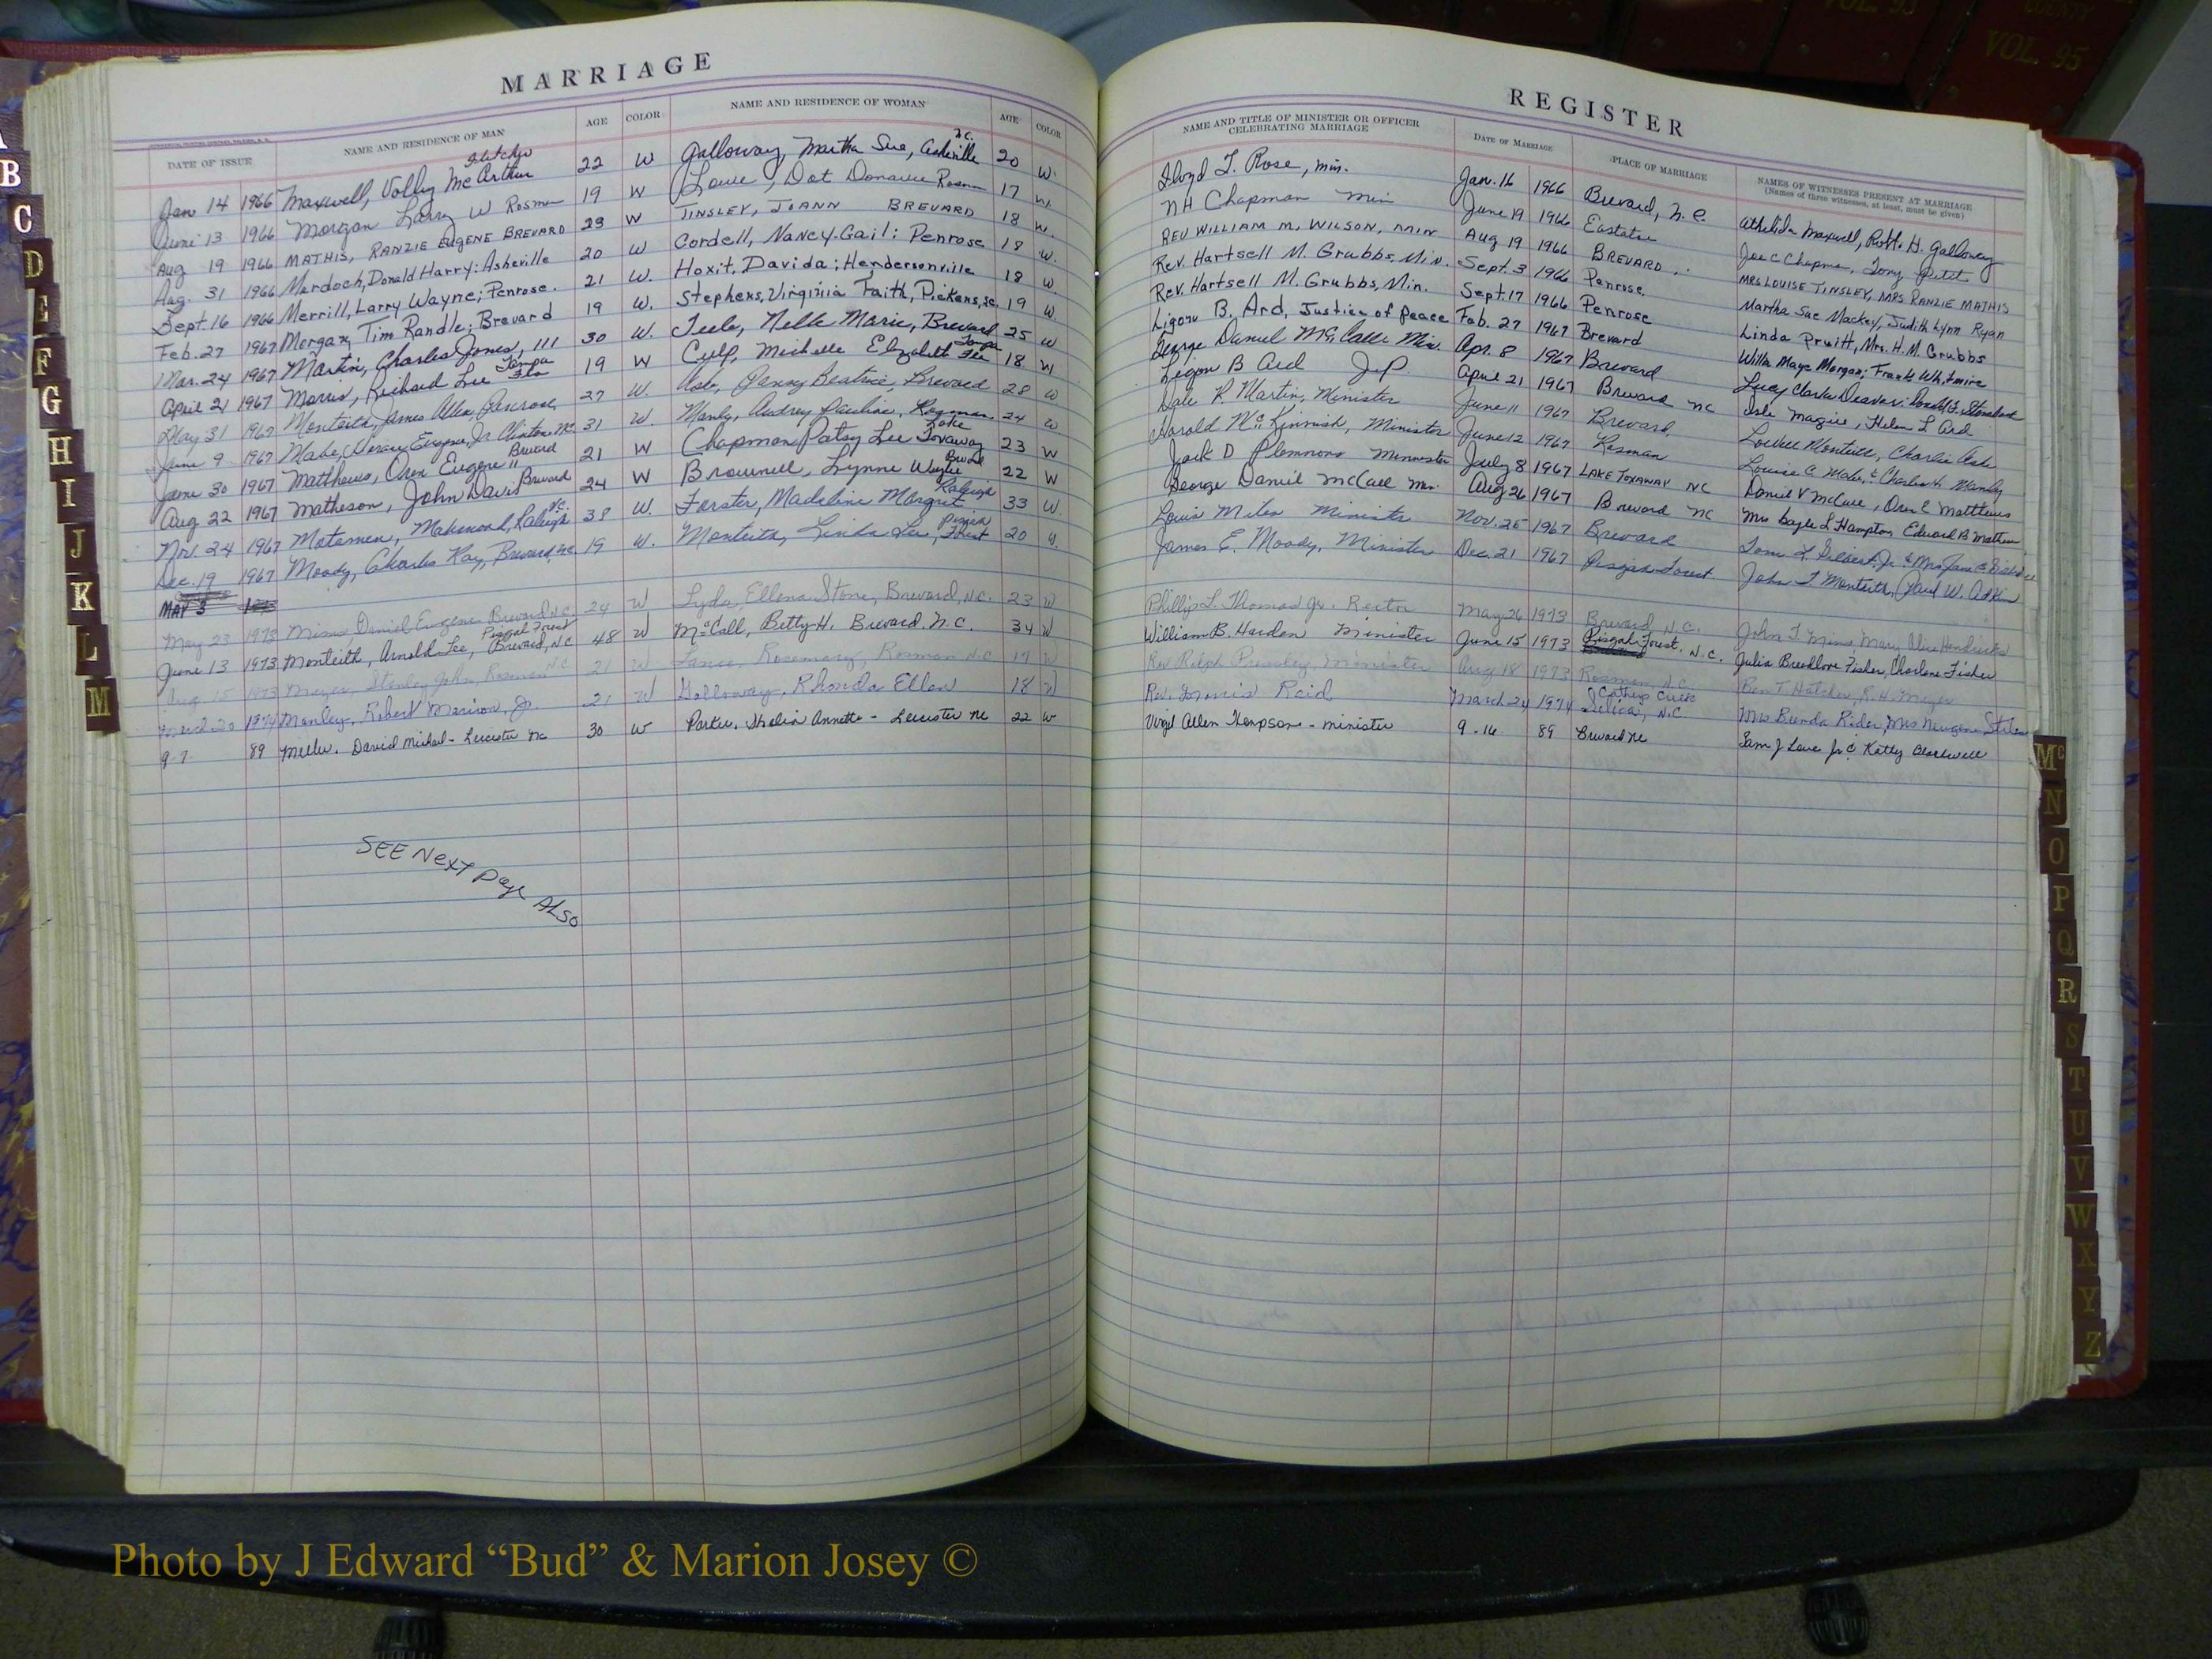 MARRIAGE
DATE OF ISSUE NAME AND RESIDENCE OF MAN AGE COLOR NAME AND RESIDENCE OF WOMAN AGE COLOR
Jan 14 1966 Maxwell, Volley McArthur Fletcher 22 W Galloway, Martha Sue, Asheville N.C. 20 W.
June 13 1966 Morgan Larry W Rosman 19 W Dot Rosman 17 W.
Aug 19 1966 MATHIS, RANZIE EUGENE BREVARD 23 W TINSLEY, JOANN BREVARD 18 W.
Aug. 31 1966 Murdoch, Donald Harry; Asheville 20 W Cordell, Nancy Gail; Penrose 18 W.
Sept. 16 1966 Merrill, Larry Wayne; Penrose. 21 W. Hoxit, Davida; Hendersonville 18 W
Feb. 27 1967 Morgan, Tim Randle; Brevard 19 W. Stephens, Virginia Faith, Pickens, SC. 19 W.
Mar. 24 1967 Martin, Charles Jones, III 30 W. Nelle Marie, Brevard 25 W
April 21 1967 Morris, Richard Lee Tampa Fla 19 W Culp, Michelle Elizabeth Tampa Fla 18 W
May 31 1967 Monteith, James Allen, Penrose, 27 W. Ashe, Beatrice, Brevard 28 W
June 9 1967 Eugene, Jr. Clinton, NC 31 W. Manly, Audrey Pauline, Rosman 24 W
June 30 1967 Matthews, Oren Eugene Brevard 21 W Chapman Patsy Lee Lake Toxaway 23 W
Aug 22 1967 Matheson, John Davis Brevard 24 W Brownell, Lynne 22 W
Nov. 24 1967 Raleigh NC 38 W. Forster, Madeline Margret Raleigh 33 W.
Dec. 19 1967 Moody, Charles Ray, Brevard, NC. 19 W. Monteith, Linda Lee, Pisgah Forest 20 W.
MAY 3
May 23 1973 Mims Daniel Eugene Brevard N.C. 24 W Lyda, Ellena Stone, Brevard, N.C. 23 W
June 13 1973 Monteith, Arnold Lee, Pisgah Forest Brevard, N.C 48 W McCall, Betty H. Brevard. N.C. 34 W
Aug 15 1973 Meyer, Stanley John, Rosman N.C. 21 W Lance, Rosemary, Rosman N.C 17 W
March 20 1974 Manley, Robert Marion, Jr. 21 W Galloway, Rhonda Ellen 18 W
9-7 89 Miller, David Michael - Leicester NC 30 W Parker, Annette - Leicester NC 22 W
SEE Next Page ALSO
REGISTER
NAME AND TITLE OF MINISTER OR OFFICER CELEBRATING MARRIAGE DATE OF MARRIAGE PLACE OF MARRIAGE NAMES OF WITNESSES PRESENT AT MARRIAGE
(Names of three witnesses, at least, must be given)
Lloyd T. Rose, Min. Jan. 16 1966 Brevard, N.C. Maxwell, Robt. H. Galloway
N H Chapman Min June 19 1966 Eastatoe Joe C Chapman, Tony
REV WILLIAM M. WILSON, MIN Aug 19 1966 BREVARD MRS LOUISE TINSLEY, MRS RANZIE MATHIS
Rev. Hartsell M. Grubbs, Min. Sept. 3 1966 Penrose. Martha Sue Mackey, Judith Lynn Ryan
Rev. Hartsell M. Grubbs, Min. Sept. 17 1966 Penrose Linda Pruitt, Mrs. H.M. Grubbs
Ligon B. Ard, Justice of Peace Feb. 27 1967 Brevard Willa Maye Morgan; Frank Whitmire
George Daniel McCall Min. Apr. 8 1967 Brevard Lucy Clarke Deaver;
Ligon B Ard JP April 21 1967 Brevard NC Helen L Ard
Dale R. Martin, Minister June 11 1967 Brevard Monteith, Charlie Ashe
Harold McKinnish, Minister June 12 1967 Rosman Louise C. Charles H. Manly
Jack D Plemmons Minister July 8 1967 LAKE TOXAWAY NC Daniel V McCall, Oren E Matthews
George Daniel McCall Min. Aug 26 1967 Brevard NC Mrs Gayle L Hampton, Edward B
Louis Miles Minister Nov. 25 1967 Brevard
James E. Moody, Minister Dec. 21 1967 Pisgah Forest John T Monteith,
Phillip L. Thomas Jr. Rector May 26 1973 Brevard N.C. John T Mims, Mary Alice Hendricks
William B. Harden Minister June 15 1973 Pisgah Forest. N.C. Julia Breedlove Fisher, Charlene Fisher
Rev Ralph Pressley, Minister Aug 18 1973 Rosman, N.C. Ben T. Hatcher, R.H. Meyer
Rev. Reid March 24 1974 Cathey's Creek Selica, N.C Mrs Brenda Rider, Mrs
Virgil Allen Thompson - minister 9-16 89 Brevard NC Sam J Love Jr & Kathy Blackwell
B
C
D
E
F
G
H
I
J
K
L
M
Mc
N
O
P
Q
R
S
T
U
V
W
X
Y
Z
VOL. 93
COUNTY
VOL. 95
Photo by J Edward “Bud” & Marion Josey ©